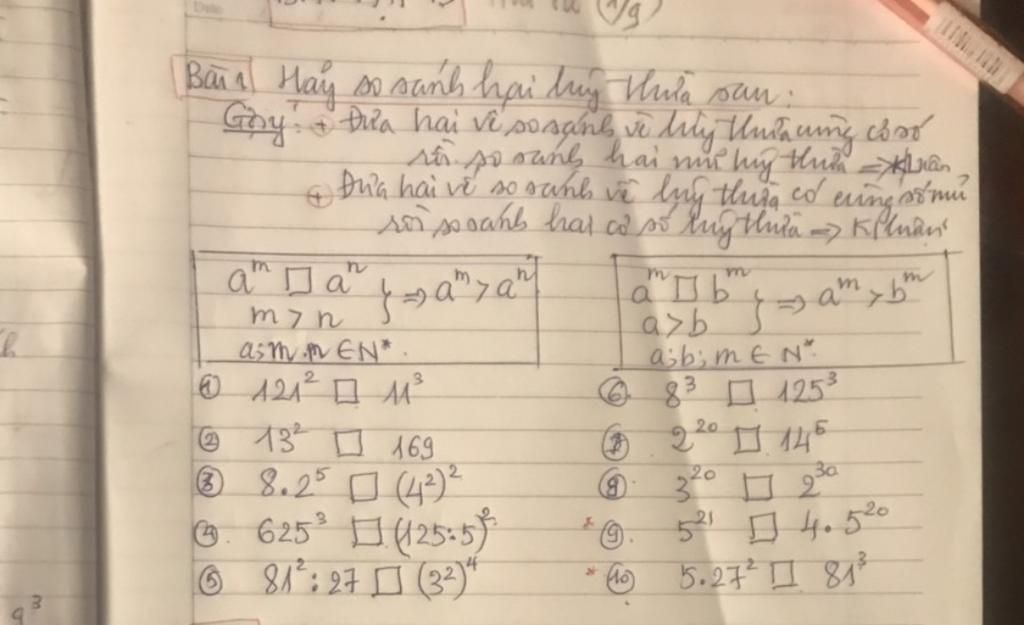 Date
(1/9)
Bài 1 Hãy so sánh hai luỹ thừa sau:
Gợi ý: + Đưa hai vế so sánh về luỹ thừa cùng cơ số
rồi so sánh hai mũ luỹ thừa => K/luận
+ Đưa hai vế so sánh về luỹ thừa có cùng số mũ
rồi so sánh hai cơ số luỹ thừa => K/luận
a^m □ a^n
m > n
} => a^m > a^n
a; m, n ∈ N*.
a^m □ b^m
a > b
} => a^m > b^m
a; b; m ∈ N*.
① 121² □ 11³
② 13² □ 169
③ 8.2⁵ □ (4²)²
④. 625³ □ (125:5)²
⑤ 81² : 27 □ (3²)⁴
⑥. 8³ □ 125³
2²⁰ □ 14⁵
3²⁰ □ 2³⁰
* ⑨. 5²¹ □ 4.5²⁰
* ⑩. 5.27² □ 81³
9³